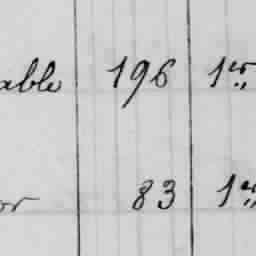 able 196 1er
or 83 1er